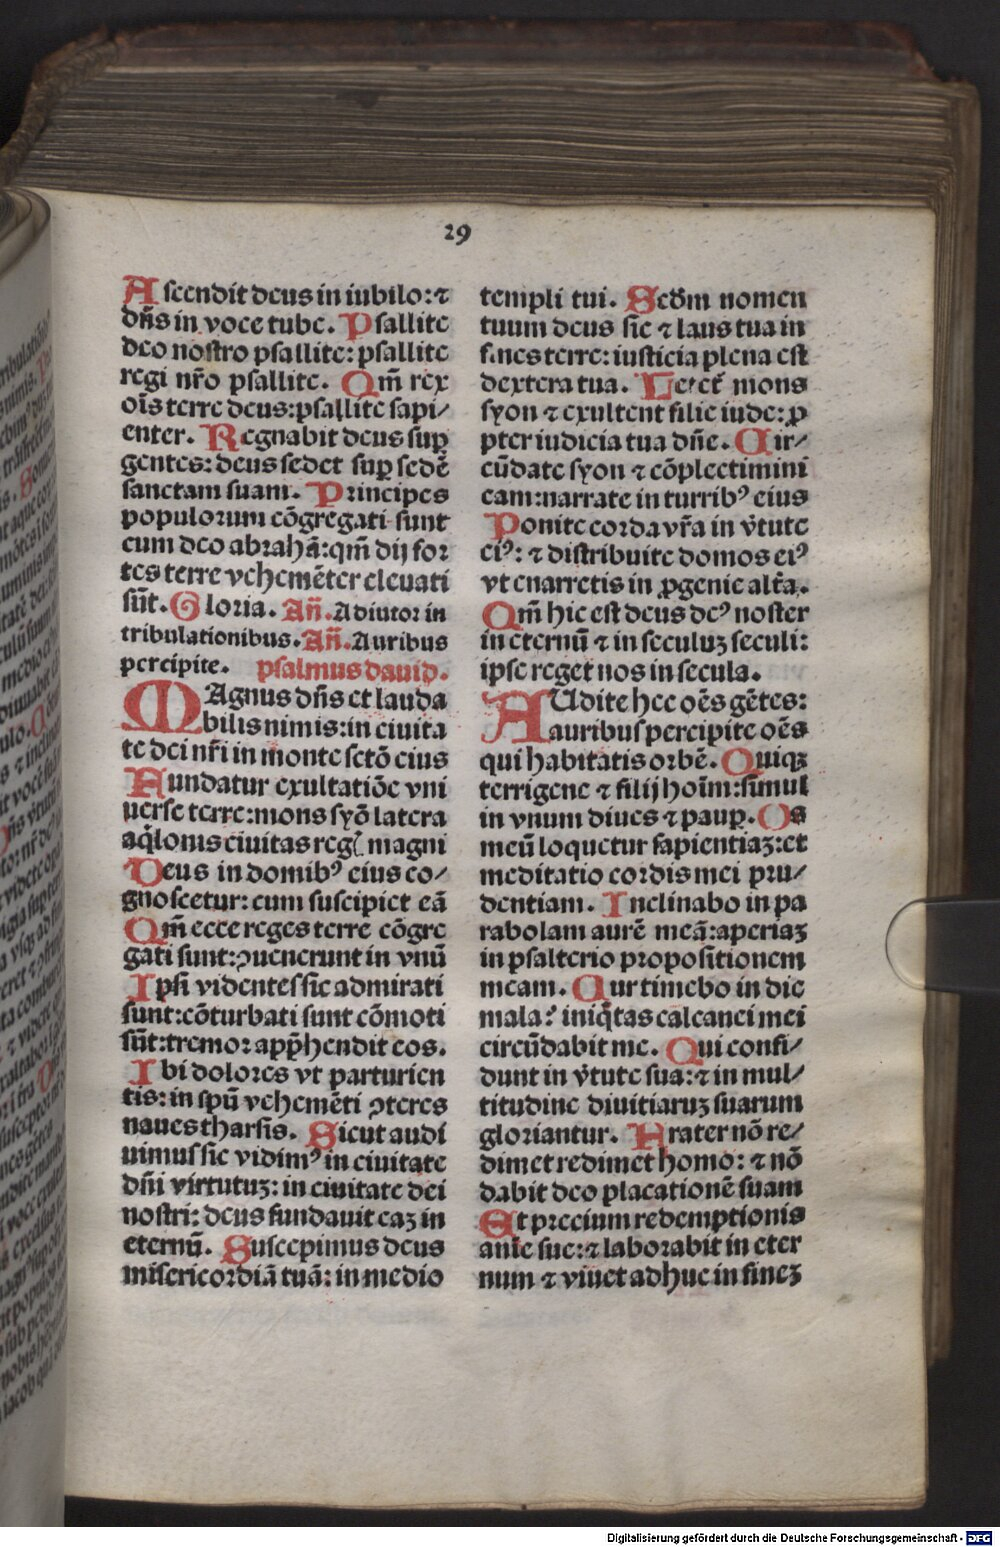 29
Ascendit deus in iubilo: ⁊
dñs in voce tube. Psallite
deo nostro psallite: psallite
regi nr̄o psallite. Qm̄ rex
oīs terre deus: psallite sapi⸗
enter. Regnabit deus suꝑ
gentes: deus sedet suꝑ sedē
sanctam suam. Principes
populorum cōgregati sunt
cum deo abrahā: qm̄ dij for
tes terre vehemēter eleuati
sūt. Gloria. Añ. Adiutor in
tribulationibus. Añ. Auribus
percipite. psalmus dauid.
MAgnus dñs et lauda
bilis nimis: in ciuita
te dei nr̄i in monte sctō eius
Fundatur exultatiōe vni
uerse terre: mons syō latera
aq̄lonis ciuitas reg magni
Deus in domibꝰ eius co⸗
gnoscetur: cum suscipiet eā
Qm̄ ecce reges terre cōgre
gati sunt: ꝯuenerunt in vnū
Ipsi videntes sic admirati
sunt: cōturbati sunt cōmoti
sūt: tremor app̄hendit eos.
Ibi dolores vt parturien
tis: in spū vehemēti ꝯteres
naues tharsis. Sicut audi
uimus sic vidimꝰ in ciuitate
dñi virtutuꝫ: in ciuitate dei
nostri: deus fundauit eaꝫ in
eternū. Suscepimus deus
misericordiā tuā: in medio
templi tui. Scd̄m nomen
tuum deus sic ⁊ laus tua in
fines terre: iusticia plena est
dextera tua. Letet̄ mons
syon ⁊ exultent filie iude: ꝓ
pter iudicia tua dñe. Cir⸗
cūdate syon ⁊ cōplectimini
eam: narrate in turribꝰ eius
Ponite corda vr̄a in v̄tute
eiꝰ: ⁊ distribuite domos eiꝰ
vt enarretis in ꝓgenie alt̄a.
Qm̄ hic est deus deꝰ noster
in eternū ⁊ in seculuꝫ seculi:
ipse reget nos in secula.
AUdite hec oēs gētes:
auribus percipite oēs
qui habitatis orbē. Quiqꝫ
terrigene ⁊ filij hoīm: simul
in vnum diues ⁊ pauꝑ. Os
meū loquetur sapientiaꝫ: et
meditatio cordis mei pru⸗
dentiam. Inclinabo in pa
rabolam aurē meā: aperiaꝫ
in psalterio propositionem
meam. Cur timebo in die
mala? iniq̄tas calcanei mei
circūdabit me. Qui confi⸗
dunt in v̄tute sua: ⁊ in mul⸗
titudine diuitiaruꝫ suarum
gloriantur. Frater nō re⸗
dimet redimet homo: ⁊ nō
dabit deo placationē suam
Et precium redemptionis
anīe sue: ⁊ laborabit in eter
num ⁊ viuet adhuc in fineꝫ
Digitalisierung gefördert durch die Deutsche Forschungsgemeinschaft - DFG